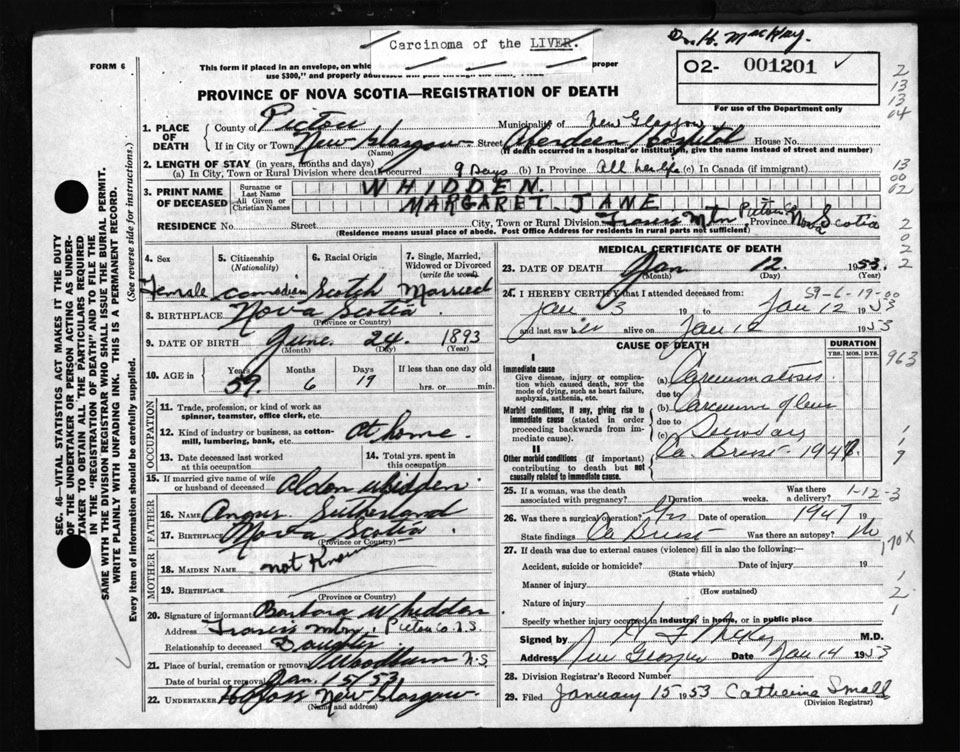 Carcinoma of the LIVER.
Dr. H. MacKay.
FORM 6
This form if placed in an envelope, on whic
proper
use $300," and properly addressed will pass through the mail, FREE
O2- 001201 ✓
PROVINCE OF NOVA SCOTIA—REGISTRATION OF DEATH
For use of the Department only
2
13
13
04
1. PLACE OF DEATH
County of Pictou Municipality of New Glasgow
If in City or Town New Glasgow Street Aberdeen Hospital House No.
(Name) (If death occurred in a hospital or institution, give the name instead of street and number)
2. LENGTH OF STAY (in years, months and days)
(a) In City, Town or Rural Division where death occurred 9 Days (b) In Province All her life (c) In Canada (if immigrant)
13
00
02
3. PRINT NAME OF DECEASED
Surname or Last Name WHIDDEN.
All Given or Christian Names MARGARET JANE
RESIDENCE No. Street City, Town or Rural Division Frasers Mtn Pictou Co Province Nova Scotia
(Residence means usual place of abode. Post Office Address for residents in rural parts not sufficient)
2
0
2
2
4. Sex Female
5. Citizenship (Nationality) Canadian
6. Racial Origin Scotch
7. Single, Married, Widowed or Divorced (write the word) Married
8. BIRTHPLACE Nova Scotia
(Province or Country)
9. DATE OF BIRTH June 24. 1893
(Month) (Day) (Year)
10. AGE in Years Months Days If less than one day old
59. 6 19 hrs. or min.
OCCUPATION
11. Trade, profession, or kind of work as spinner, teamster, office clerk, etc.
12. Kind of industry or business, as cotton-mill, lumbering, bank, etc. At home.
13. Date deceased last worked at this occupation
14. Total yrs. spent in this occupation
15. If married give name of wife or husband of deceased Aldon Whidden
FATHER
16. Name Angus Sutherland
17. Birthplace Nova Scotia
(Province or Country)
MOTHER
18. MAIDEN NAME not Known
19. BIRTHPLACE
(Province or Country)
20. Signature of informant Barbara Whidden
Address Frasers Mtn, Pictou Co. N.S.
Relationship to deceased Daughter
21. Place of burial, cremation or removal Woodburn N.S.
Date of burial or removal Jan. 15/53
22. UNDERTAKER New Glasgow
(Name and address)
MEDICAL CERTIFICATE OF DEATH
23. DATE OF DEATH Jan 12. 1953.
(Month) (Day)
59-6-19-00
24. I HEREBY CERTIFY that I attended deceased from:
Jan 3 19 to Jan 12 1953
and last saw her alive on Jan 12 1953
CAUSE OF DEATH
DURATION
YRS. MOS. DYS.
963
I
Immediate cause
Give disease, injury or complication which caused death, not the mode of dying, such as heart failure, asphyxia, asthenia, etc.
(a) Carcinomatosis
due to
Morbid conditions, if any, giving rise to immediate cause (stated in order proceeding backwards from immediate cause).
(b) Carcinoma of liver
due to
(c) Secondary
II
Other morbid conditions (if important) contributing to death but not causally related to immediate cause.
Ca. Breast - 1947.
1
1
9
25. If a woman, was the death associated with pregnancy? Duration weeks. Was there a delivery?
1-12-3
26. Was there a surgical operation? Yes Date of operation 1947 19
State findings Ca Breast Was there an autopsy? No
170X
27. If death was due to external causes (violence) fill in also the following:—
Accident, suicide or homicide? Date of injury 19
(State which)
Manner of injury
(How sustained)
Nature of injury
Specify whether injury occurred in industry, in home, or in public place
1
2
1
Signed by M.D.
Address New Glasgow Date Jan 14 1953
28. Division Registrar's Record Number
29. Filed January 15 1953 Catherine Small
(Division Registrar)
SEC. 46—VITAL STATISTICS ACT MAKES IT THE DUTY
OF THE UNDERTAKER OR PERSON ACTING AS UNDER-
TAKER TO OBTAIN ALL THE PARTICULARS REQUIRED
IN THE "REGISTRATION OF DEATH" AND TO FILE THE
SAME WITH THE DIVISION REGISTRAR WHO SHALL ISSUE THE BURIAL PERMIT.
WRITE PLAINLY WITH UNFADING INK. THIS IS A PERMANENT RECORD.
Every item of information should be carefully supplied. (See reverse side for instructions.)